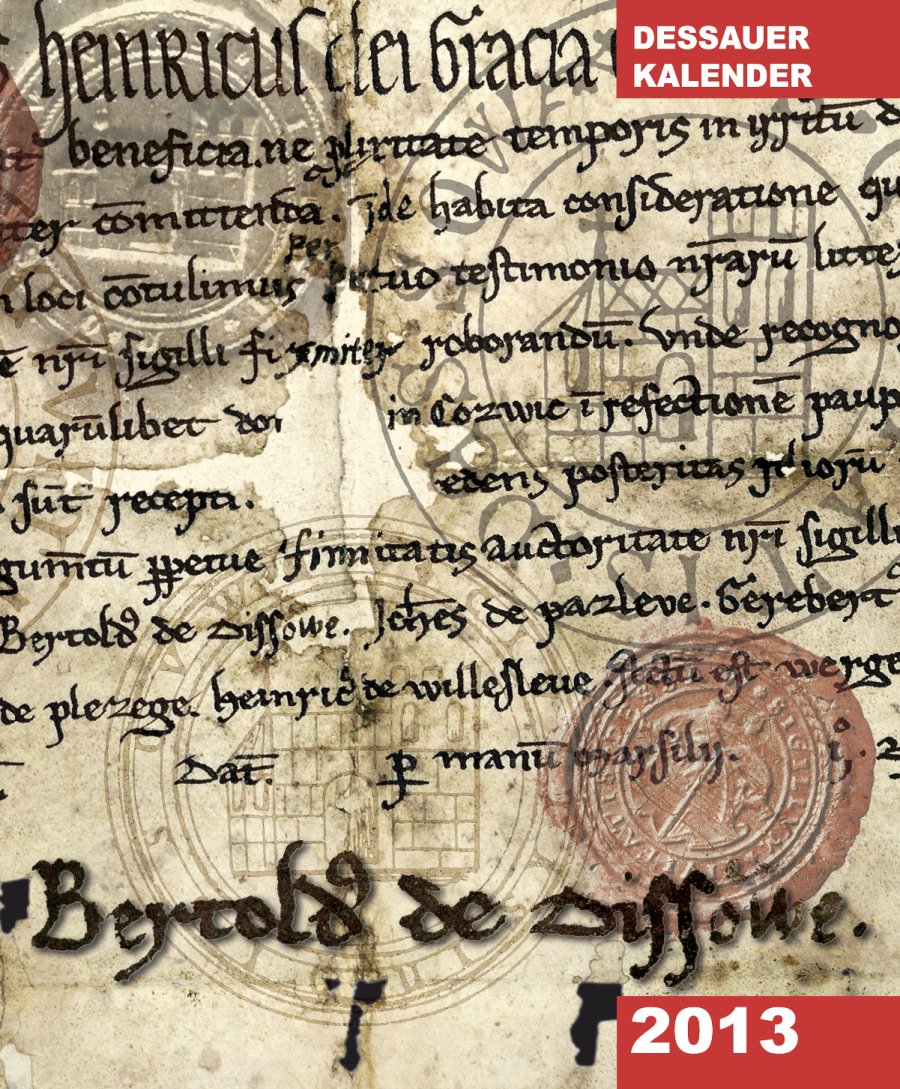 DESSAUER
KALENDER
heinricus dei Gracia
beneficia. ne pluritate temporis in yrritū d
iter cōmittenda. īde habita consideratione qu
per
n loci cōtulimus petuo testimonio nrārū litte
ē nrī sigilli firmiter roborandū. Vnde recogno
quarūlibet don in Cozwic ī refectionē paup
sūt recepti. edens posteritas
gumtū ppetue firmitatis auctoritate nrī sigilli
Bertold9 de Dissowe. Johēs de parleve. Gerebert9
de plezege. heinric9 de willesleve factū est werge
Dat. p manū Marsilij.
Bertold9 de Dissowe.
2013